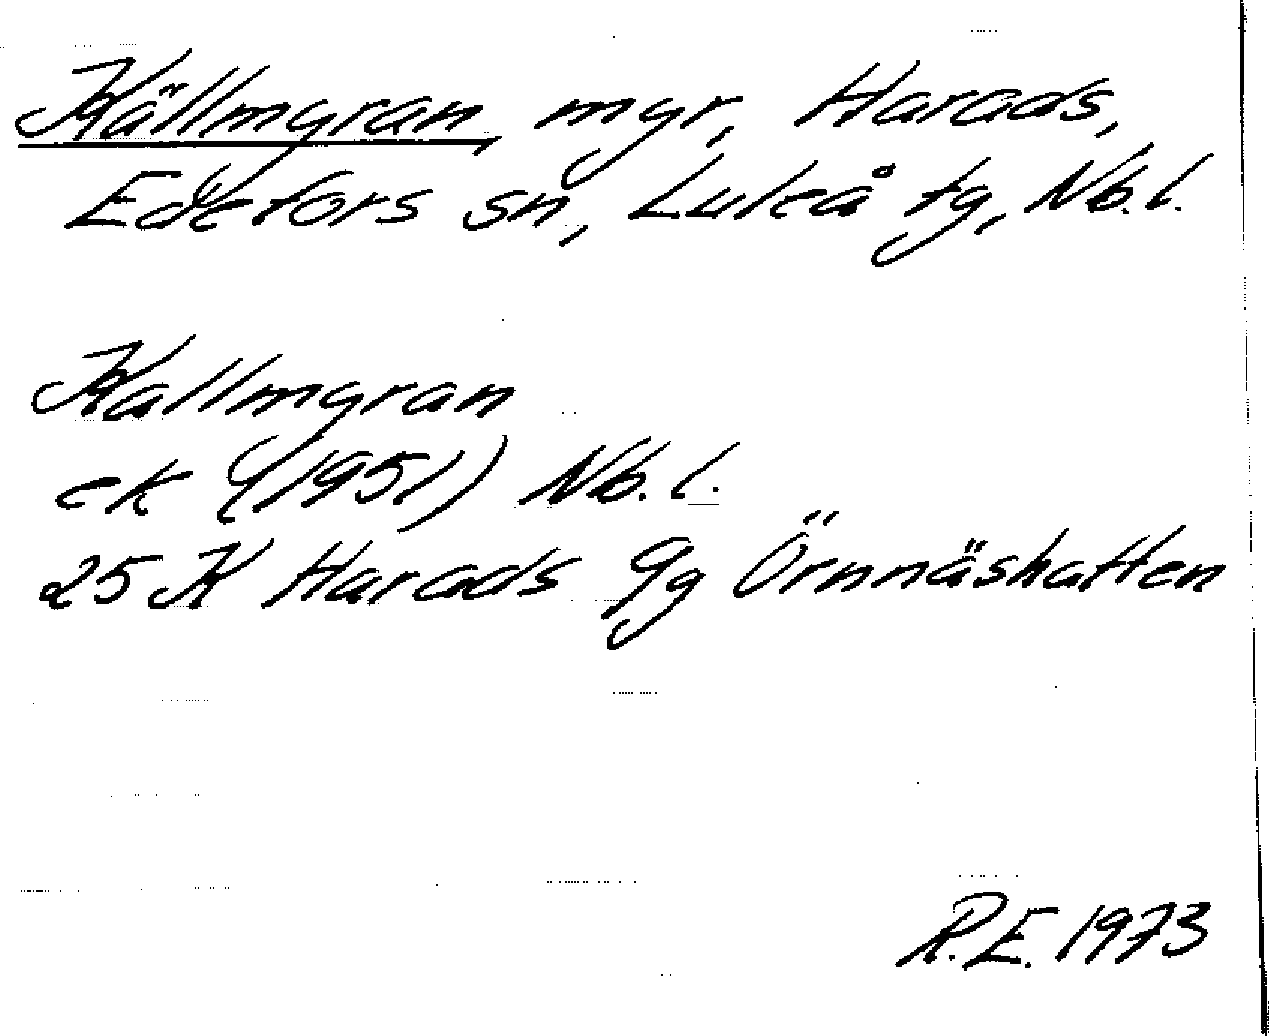 Källmyran, myr, Harads,
Edefors sn, Luleå tg, Nb.l.
Kallmyran
ek (1951) Nb.l.
25 K Harads 9g Örnnäshatten
R.E. 1973